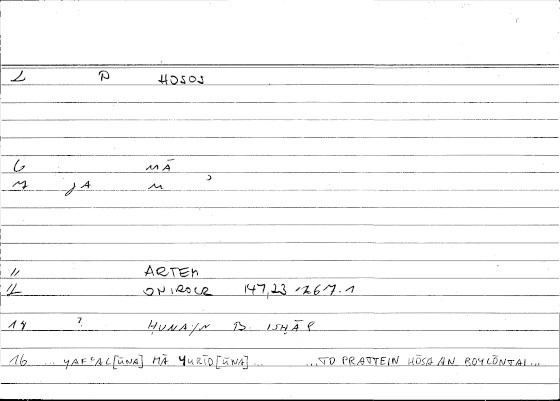 2 P HOSOS
6 MĀ
7 JA M
11 ARTEM
12 ONIROCR 147,23 -267.1
14 ? ḤUNAJN B. ISḤĀḲ
16 ... YAFʿAL[ŪNA] MĀ YURĪD[ŪNA] ... ...TO PRATTEIN HŌSA AN BOYLŌNTAI...